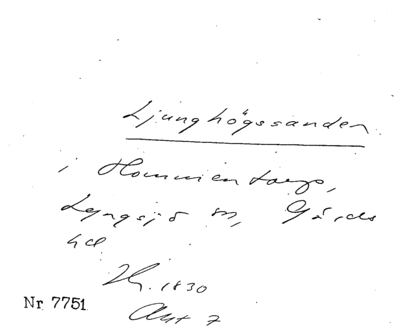 Ljunghögssanden
i Hommentorp,
Lyngsjö sn, Gärds
hd
1830
Akt 7
Nr 7751